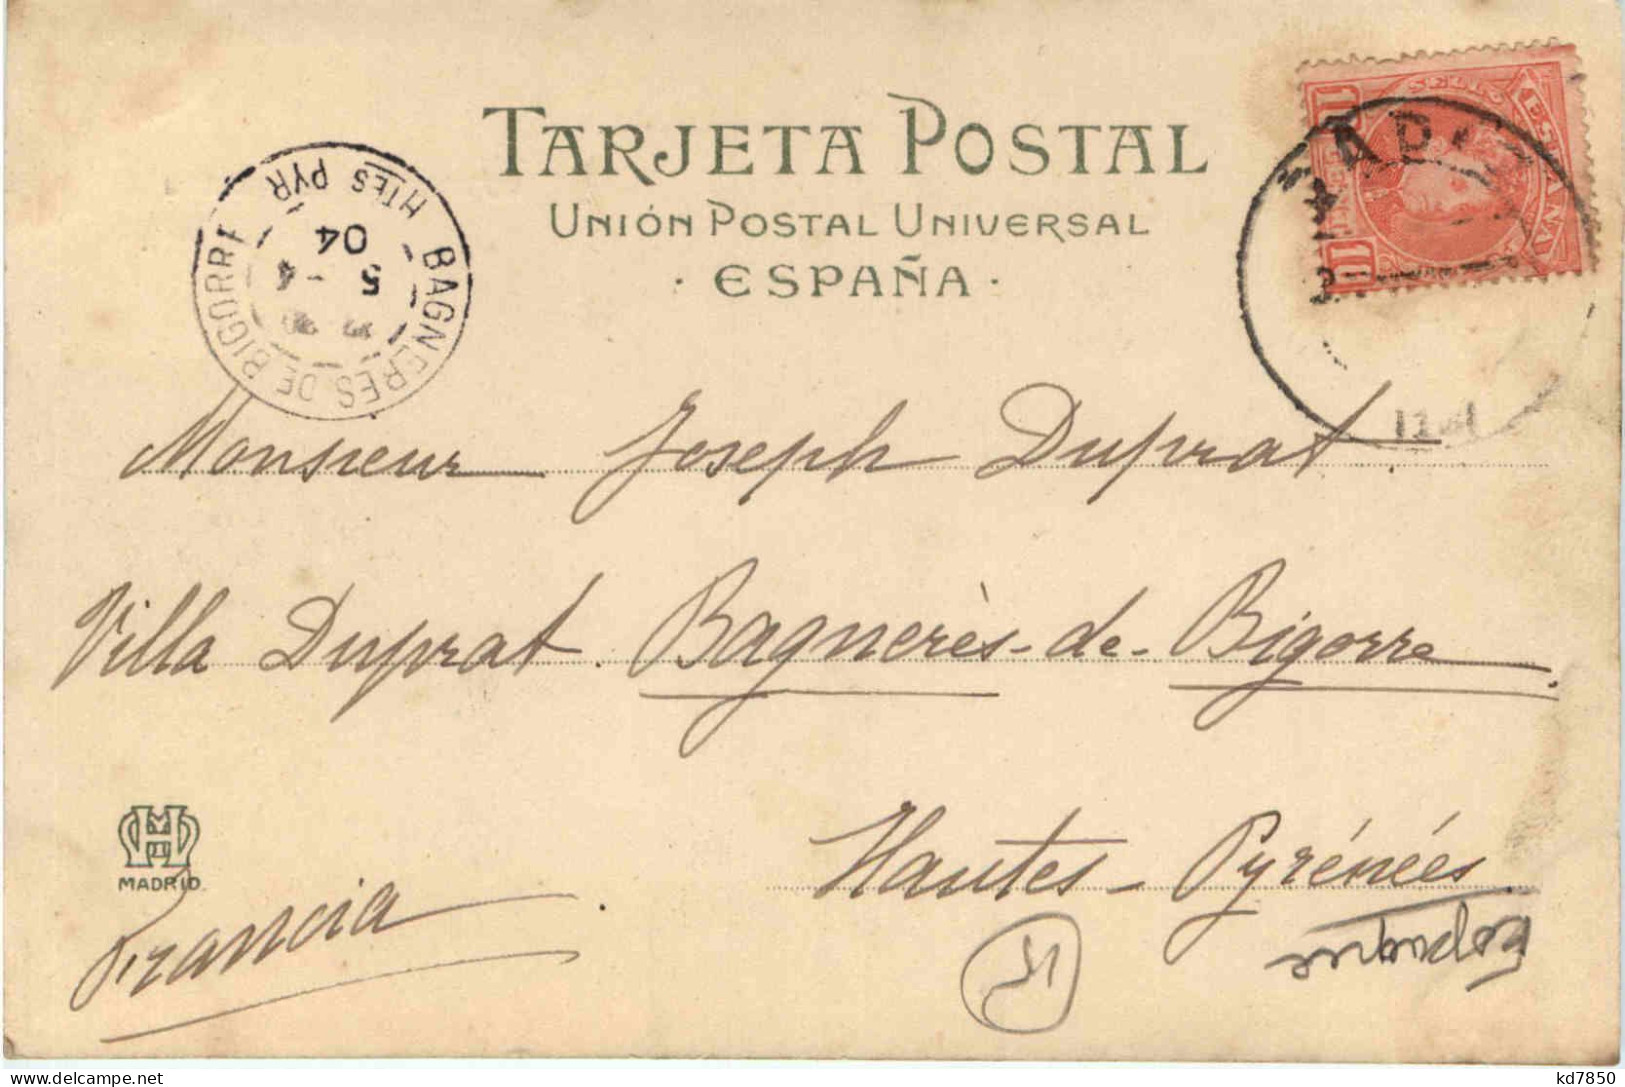 TARJETA POSTAL
UNIÓN POSTAL UNIVERSAL
· ESPAÑA ·
SELLO
ESPAÑA
BAGNERES DE BIGORRE
HTES PYR
5 - 4
04
Monsieur Joseph Duprat.
Villa Duprat. Bagnerès-de-Bigorre.
Hautes-Pyrénées.
Francia
MADRID.
Espagne
kd7850